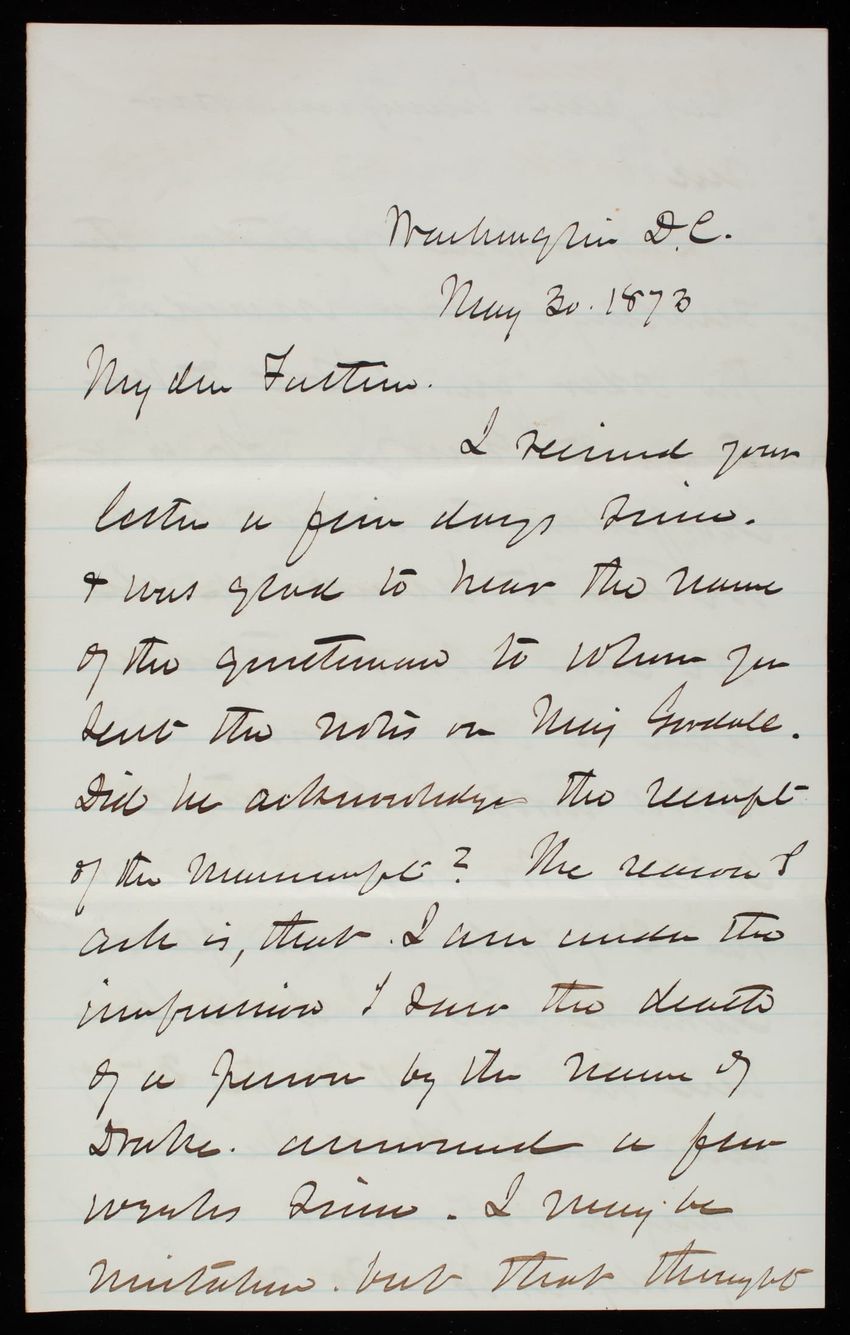 Washington D.C.
May 30. 1873
My dear
I received your
letter a few days since.
& was glad to hear the name
of the gentleman to whom you
sent the notes on Maj Goodall.
Did he acknowledge the receipt
of the Manuscript? The reason I
ask is, that I am under the
impression I saw the death
of a person by the name of
Drake. announced a few
weeks since. I may be
mistaken. but that thought